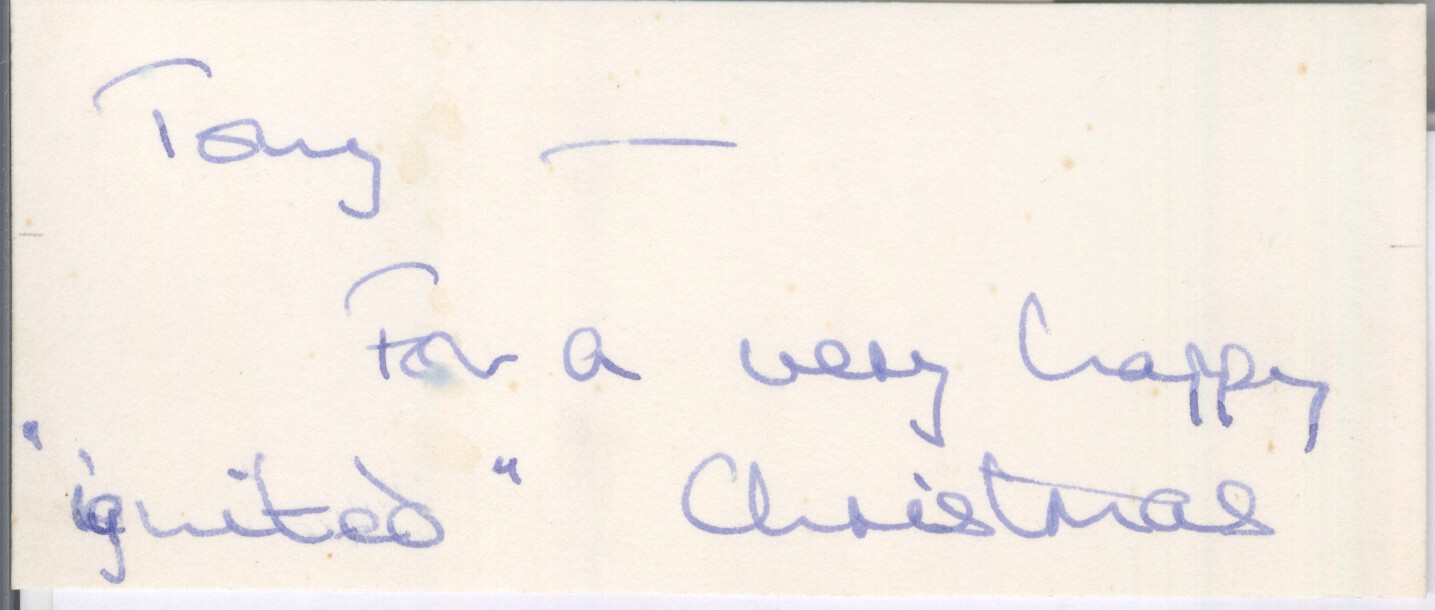 Tony —
For a very happy
"ignited" Christmas